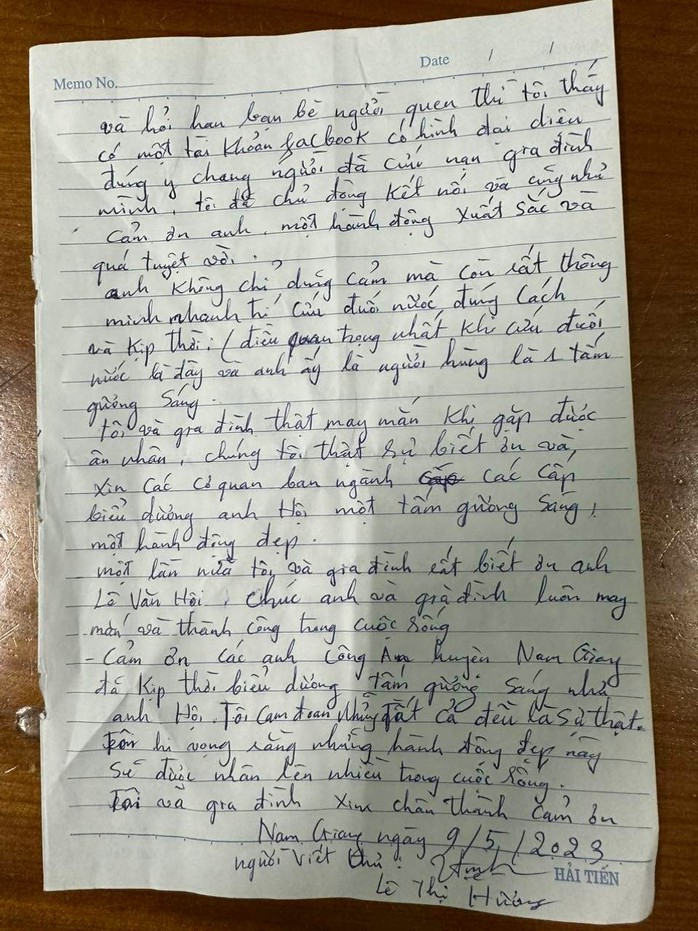 Memo No. Date / /
và hỏi han bạn bè người quen thì tôi thấy
có một tài khoản facbook có hình đại diện
đúng y chang người đã cứu nạn gia đình
mình, tôi đã chủ động kết nối và cũng như
cảm ơn anh, một hành động xuất sắc và
quá tuyệt vời.
anh không chỉ dũng cảm mà còn rất thông
minh nhanh trí cứu đuối nước đúng cách
và kịp thời. (điều quan trọng nhất khi cứu đuối
nước là đây và anh ấy là người hùng là 1 tấm
gương sáng.
tôi và gia đình thật may mắn khi gặp được
ân nhân, chúng tôi thật sự biết ơn và,
xin các cơ quan ban ngành các cấp
biểu dương anh Hội một tấm gương sáng,
một hành động đẹp.
một lần nữa tôi và gia đình rất biết ơn anh
Lê Văn Hội, chúc anh và gia đình luôn may
mắn và thành công trong cuộc sống
- Cảm ơn các anh Công An huyện Nam Giang
đã kịp thời biểu dương tấm gương sáng như
anh Hội. Tôi cam đoan những tất cả đều là sự thật.
Tôi hi vọng rằng những hành động đẹp này
sẽ được nhân lên nhiều trong cuộc sống.
Tôi và gia đình xin chân thành cảm ơn
Nam Giang ngày 9/5/2023
người viết thư.
HẢI TIẾN
Lê Thị Hương